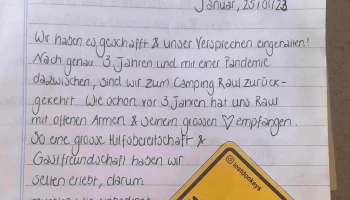 Januar, 25/01/23
Wir haben es geschafft & unser Versprechen eingehalten!
Nach genau 3 Jahren und mit einer Pandemie
dazwischen, sind wir zum Camping Raul zurück-
gekehrt. Wie schon vor 3 Jahren hat uns Raul
mit offenen Armen & seinem grossen ♡ empfangen.
So eine grosse Hilfsbereitschaft &
Gastfreundschaft haben wir
selten erlebt, darum
lostdonkeys